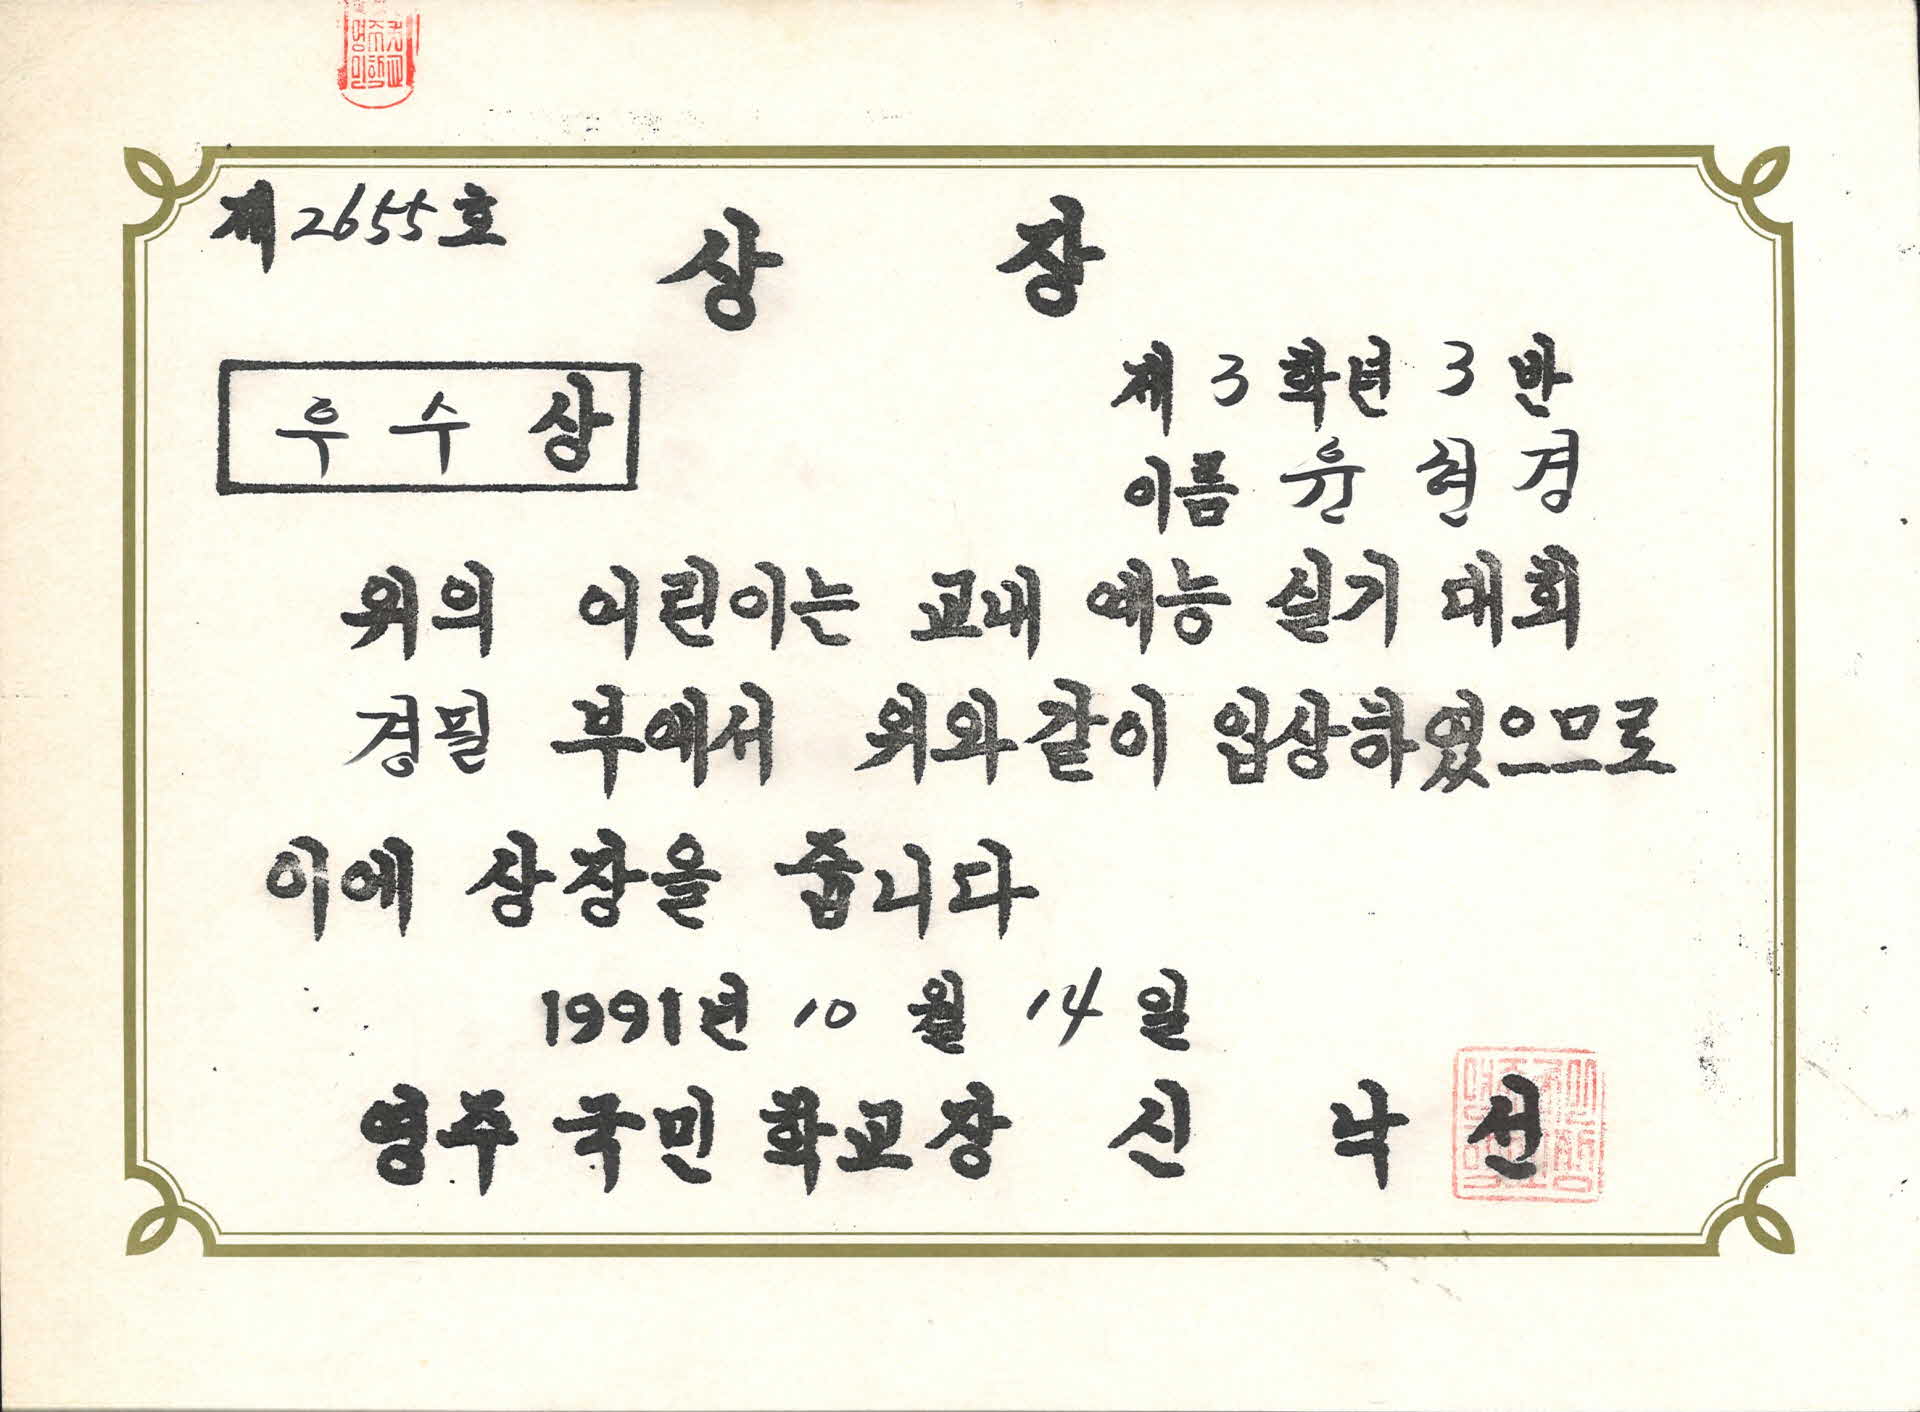 제2655호
상 장
우수상
제 3 학년 3 반
이름 윤 현 경
위의 어린이는 교내 예능 실기 대회
경필 부에서 위와같이 입상하였으므로
이에 상장을 줍니다
1991년 10 월 14 일
영주 국민 학교장 신 낙 선